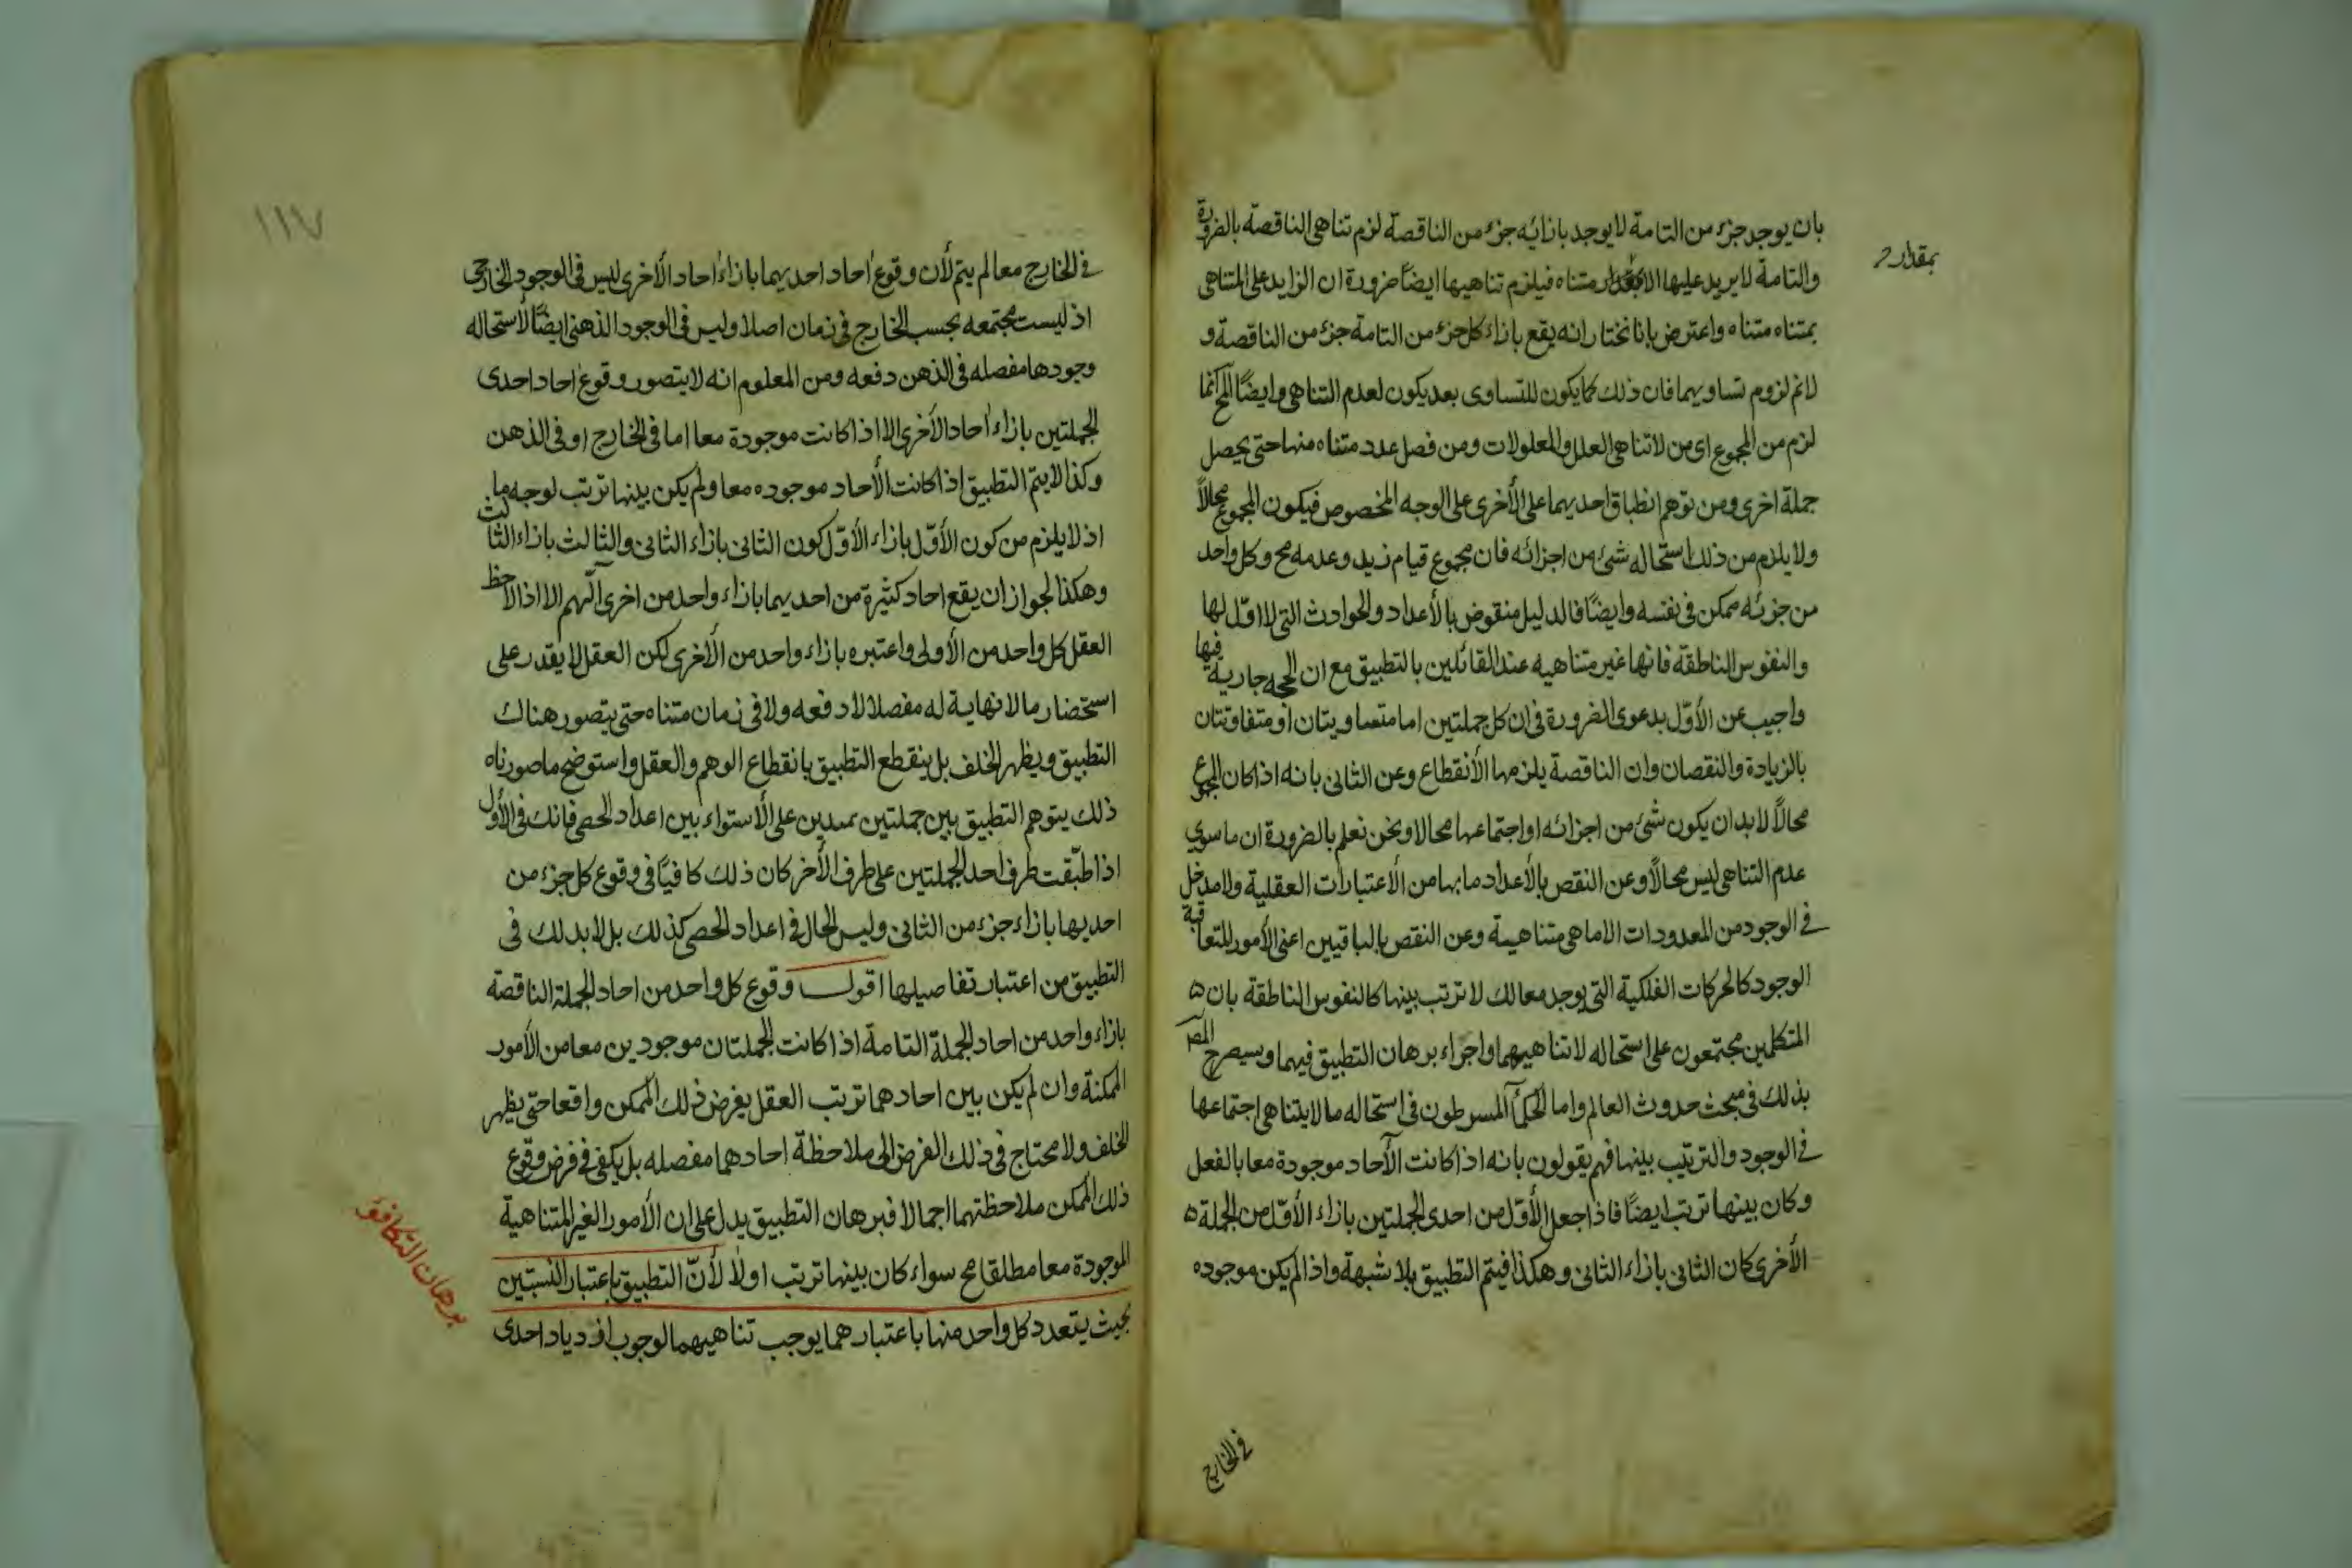 بان يوجد جزء من التامة لا يوجد بازائه جزء من الناقصة لزم تناهى الناقصة بالضرورة
والتامة لا يزيد عليها الا بمقدار متناه فيلزم تناهيها ايضًا ضرورة ان الزايد على المتناهى
بمقدار
بمتناه متناه واعترض بانا نختار انه يقع بازاء كل جزء من التامة جزء من الناقصة و
لانم لزوم تساويهما فان ذلك كما يكون للتساوى بعد يكون لعدم التناهى وايضًا المح انما
لزم من المجموع اى من لاتناهى العلل والمعلولات ومن فصل عدد متناه منها حتى يحصل
جملة اخرى ومن توهم انطباق احديهما على الأخرى على الوجه المخصوص فيكون المجموع محالًا
ولا يلزم من ذلك استحاله شئ من اجزائه فان مجموع قيام زيد وعدمه مح وكل واحد
من جزئه ممكن فى نفسه وايضًا فالدليل منقوض بالأعداد والحوادث التى لا اوّل لها
والنفوس الناطقة فانها غير متناهيه عند القائلين بالتطبيق مع ان الحجه جارية فيها
واجيب عن الأوّل بدعوى الضرورة فى ان كل جملتين اما متساويتان او متفاوتتان
بالزيادة والنقصان وان الناقصة يلزمها الأنقطاع وعن الثانى بانه اذا كان المجموع
محالًا لابد ان يكون شئ من اجزائه او اجتماعها محالا ونحن نعلم بالضرورة ان ما سوى
عدم التناهى ليس محالًا وعن النقص بالأعداد ما بها من الأعتبارات العقلية ولا مدخل
فى الوجود من المعدودات الا ما هى متناهية وعن النقص بالباقيين اعنى الأمور المتعاقبة
الوجود كالحركات الفلكية التى يوجد معا لك لا ترتب بينها كالنفوس الناطقة بان
المتكلمين مجتمعون على استحاله لاتناهيهما واجراء برهان التطبيق فيهما وسيصرح المص
بذلك فى مبحث حدوث العالم واما الحكمآ المسرطون فى استحاله ما لا يتناهى اجتماعها
فى الوجود والترتيب بينها فهم يقولون بانه اذا كانت الآحاد موجودة معا بالفعل
وكان بينها ترتب ايضًا فاذا جعل الأوّل من احدى الجملتين بازاء الأوّل من الجملة
الأخرى كان الثانى بازاء الثانى وهكذا فيتم التطبيق بلا شبهة واذا لم يكن موجوده
فى الخارج
١١٧
فى الخارج معا لم يتم لأن وقوع احاد احديهما بازاء احاد الأخرى ليس فى الوجود الخارجى
اذ ليست مجتمعه بحسب الخارج فى زمان اصلا وليس فى الوجود الذهنى ايضًا لأستحاله
وجودها مفصله فى الذهن دفعه ومن المعلوم انه لا يتصور وقوع احاد احدى
الجملتين بازاء احاد الأخرى الا اذا كانت موجودة معا اما فى الخارج او فى الذهن
وكذا لا يتم التطبيق اذا كانت الأحاد موجوده معا ولم يكن بينها ترتب لوجه ما
اذ لا يلزم من كون الأوّل بازاء الأوّل كون الثانى بازاء الثانى والثالث بازاء الثالث
وهكذا لجواز ان يقع احاد كثيرة من احديهما بازاء واحد من اخرى اللهم الا اذا لاحظ
العقل كل واحد من الأولى واعتبره بازاء واحد من الأخرى لكن العقل لا يقدر على
استحضار ما لا نهاية له مفصلا لا دفعه ولا فى زمان متناه حتى يتصور هناك
التطبيق ويظهر الخلف بل ينقطع التطبيق بانقطاع الوهم والعقل واستوضح ما صورناه
ذلك يتوهم التطبيق بين جملتين ممتدين على الأستواء بين اعداد الحصى فانك فى الأول
اذا طبّقت طرف احد الجملتين على طرف الأخر كان ذلك كافيًا فى وقوع كل جزء من
احديها بازاء جزء من الثانى وليس الحال فى اعداد الحصى كذلك بل لابد لك فى
التطبيق من اعتبار تفاصيلها اقول وقوع كل واحد من احاد الجملة الناقصة
بازاء واحد من احاد الجملة التامة اذا كانت الجملتان موجودين معا من الأمور
الممكنة وان لم يكن بين احادهما ترتب العقل يفرض ذلك الممكن واقعا حتى يظهر
الخلف ولا محتاج فى ذلك الفرض الى ملاحظة احادهما مفصله بل يكفى فى فرض وقوع
ذلك الممكن ملاحظتهما اجمالا فبرهان التطبيق يدل على ان الأمور الغير المتناهية
الموجودة معا مطلقا مح سواء كان بينها ترتب اولا لأنّ التطبيق باعتبار النسبتين
بحيث يتعدد كل واحد منها باعتبارهما يوجب تناهيهما لوجوب ازدياد احدى
برهان التكافؤ